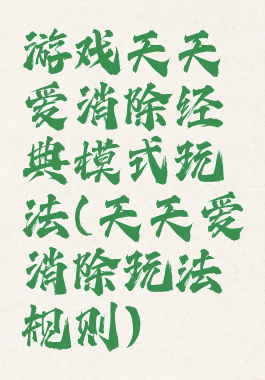 游戏天天
爱消除经
典模式玩
法(天天爱
消除玩法
规则)